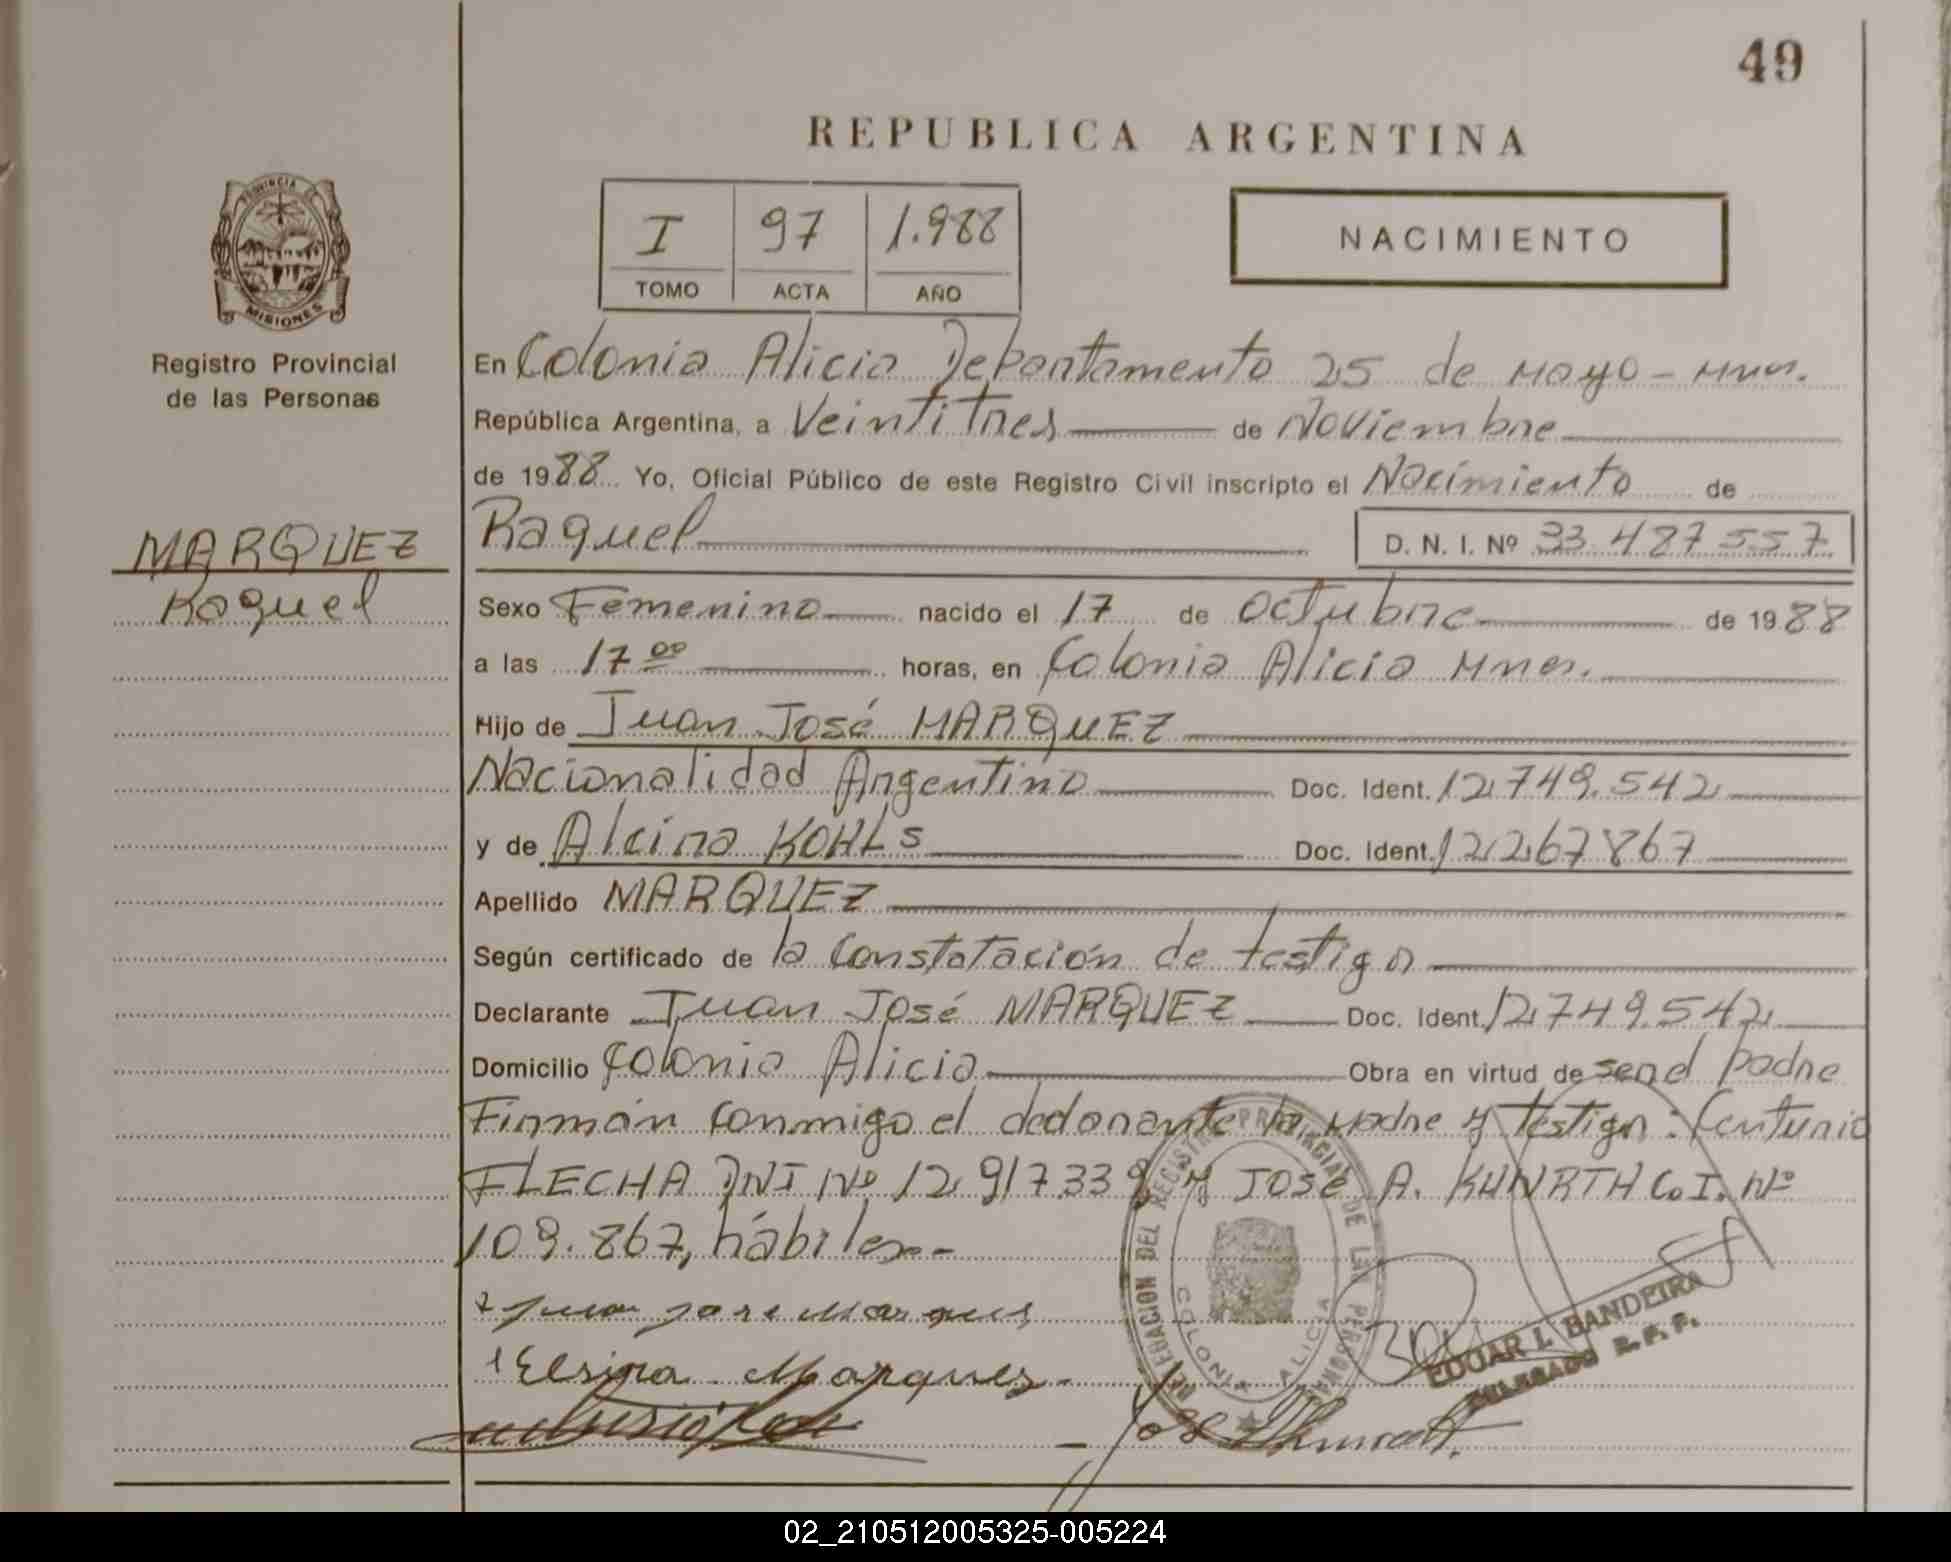 49
REPUBLICA ARGENTINA
I 97 1.988
TOMO ACTA AÑO
NACIMIENTO
PROVINCIA DE
MISIONES
Registro Provincial
de las Personas
MARQUEZ
Raquel
En Colonia Alicia Departamento 25 de Mayo - Mnes.
República Argentina, a Veintitres de Noviembre
de 1988 Yo, Oficial Público de este Registro Civil inscripto el Nacimiento de
Raquel D. N. I. Nº 33.487557
Sexo Femenino nacido el 17 de octubre de 1988
a las 17 00 horas, en Colonia Alicia Mnes.
Hijo de Juan José MARQUEZ
Nacionalidad Argentino Doc. Ident. 12.749.542
y de Alcira KOHLS Doc. Ident. 12.267867
Apellido MARQUEZ
Según certificado de la Constatación de testigos
Declarante Juan José MARQUEZ Doc. Ident. 12.749.542
Domicilio Colonia Alicia Obra en virtud de ser el padre
Firmán conmigo el declarante la Madre y testigos: Centurio
FLECHA DNI Nº 12.917.339 y José A. KUNRTH C.I. Nº
109.867, hábiles.-
DELEGACION DEL REGISTRO PROVINCIAL DE LAS PERSONAS
COLONIA ALICIA
Juan Jose Marques
Elsira Marques
EDGAR L. BANDEIRA
DELEGADO R.P.P.
José
02_210512005325-005224